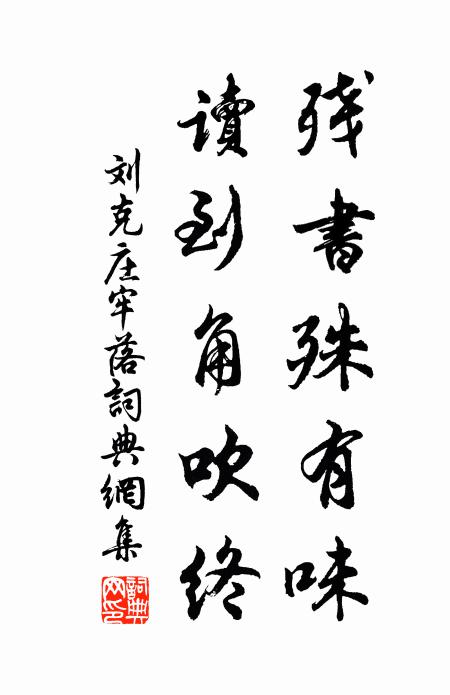 残書殊有味
讀到角吹终
刘克庄牢落詞典網集
詞典网印